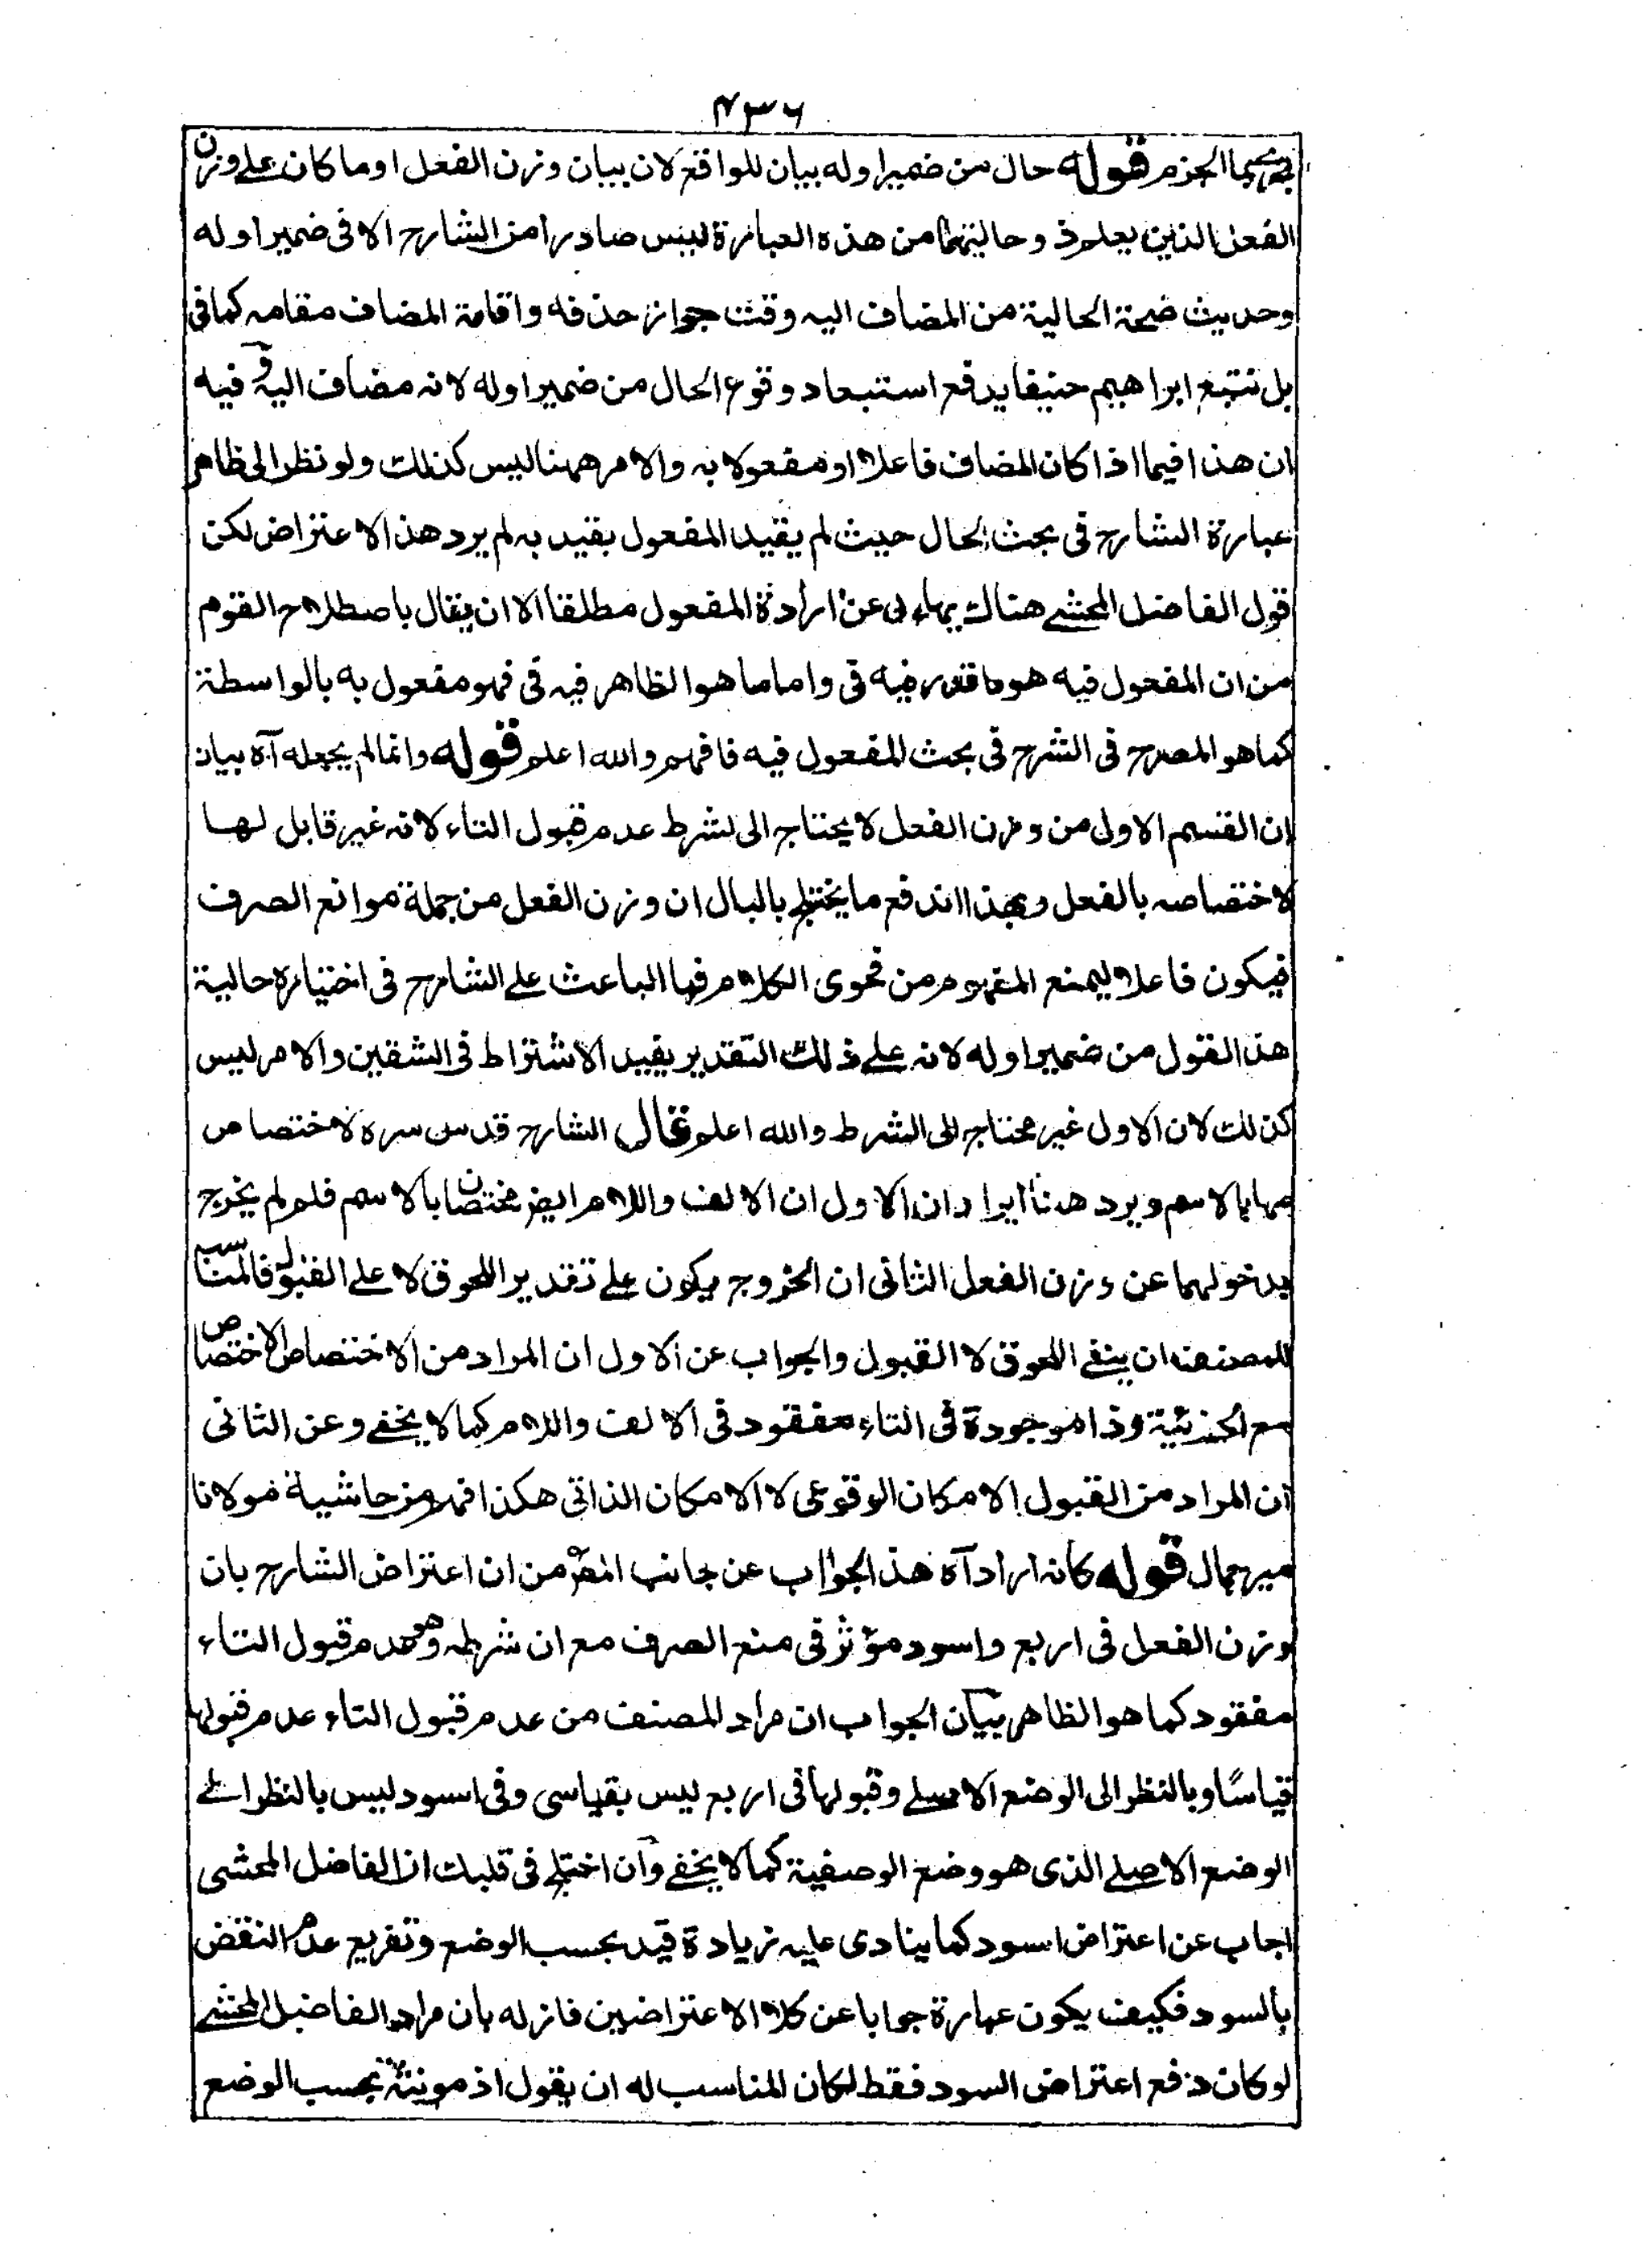 ۴۳۶
الجزم قوله حال من ضمير اوله بيان للواقع لان بيان وزن الفعل او ما كان على وزن
الفعل الذين يعلم ذ وحاليتهما من هذه العبارة ليس صادرا من الشارح الا فى ضمير اوله
وحديث صحة الحالية من المضاف اليه وقت جواز حذفه واقامة المضاف مقامه كما فى
بل نتبع ابراهيم حنيفا يدفع استبعاد وقوع الحال من ضمير اوله لانه مضاف اليه وفيه
ان هذا فيما اذا كان المضاف فاعلا او مفعولا به والامر ههنا ليس كذلك ولو نظر الى ظاهر
عبارة الشارح فى بحث الحال حيث لم يقيد المفعول بقيد به لم يرد هذا الاعتراض لكن
قول الفاضل المحشى هناك يابى عن ارادة المفعول مطلقا الا ان يقال باصطلاح القوم
من ان المفعول فيه هو ما قدر فيه فى واما ما هو الظاهر فيه فى فهو مفعول به بالواسطة
كما هو المصرح فى الشرح فى بحث المفعول فيه فافهم والله اعلم قوله وانما لم يجعله آه بيان
ان القسم الاول من وزن الفعل لا يحتاج الى شرط عدم قبول التاء لانه غير قابل لها
لاختصاصه بالفعل وبهذا اندفع ما يختلج بالبال ان وزن الفعل من جملة موانع الصرف
فيكون فاعلا ليمنع المفهوم من فحوى الكلام فما الباعث على الشارح فى اختياره حالية
هذا القول من ضمير اوله لانه على ذلك التقدير يفيد الاشتراط فى الشقين والامر ليس
كذلك لان الاول غير محتاج الى الشرط والله اعلم قال الشارح قدس سره لاختصاص
بها بالاسم ويرد هنا ايرادان الاول ان الالف واللام ايض مختصان بالاسم فلم لم يخرج
بدخولهما عن وزن الفعل الثانى ان الخروج يكون على تقدير اللحوق لا على القبول فالمناسب
للمصنف ان ينفى اللحوق لا القبول والجواب عن الاول ان المراد من الاختصاص الاختصاص
مع الجزئية وذا موجودة فى التاء مفقود فى الالف واللام كما لا يخفى وعن الثانى
ان المراد من القبول الامكان الوقوعى لا الامكان الذاتى هكذا فهم من حاشية مولانا
مير جمال قوله كانه اراد آه هذا الجواب عن جانب المصر من ان اعتراض الشارح بان
وزن الفعل فى اربع واسود مؤثر فى منع الصرف مع ان شرطه وهو عدم قبول التاء
مفقود كما هو الظاهر بيان الجواب ان مراد المصنف من عدم قبول التاء عدم قبولها
قياسًا وبالنظر الى الوضع الاصلى وقبولها فى اربع ليس بقياسى وفى اسود ليس بالنظر الى
الوضع الاصلى الذى هو وضع الوصفية كما لا يخفى وان اختلج فى قلبك ان الفاضل المحشى
اجاب عن اعتراض اسود كما ينادى عليه زيادة قيد بحسب الوضع وتفريع عدم النقض
بالسود فكيف يكون عبارة جوابا عن كلا الاعتراضين فازله بان مراد الفاضل المحشى
لو كان دفع اعتراض السود فقط لكان المناسب له ان يقول اذ مونثه بحسب الوضع